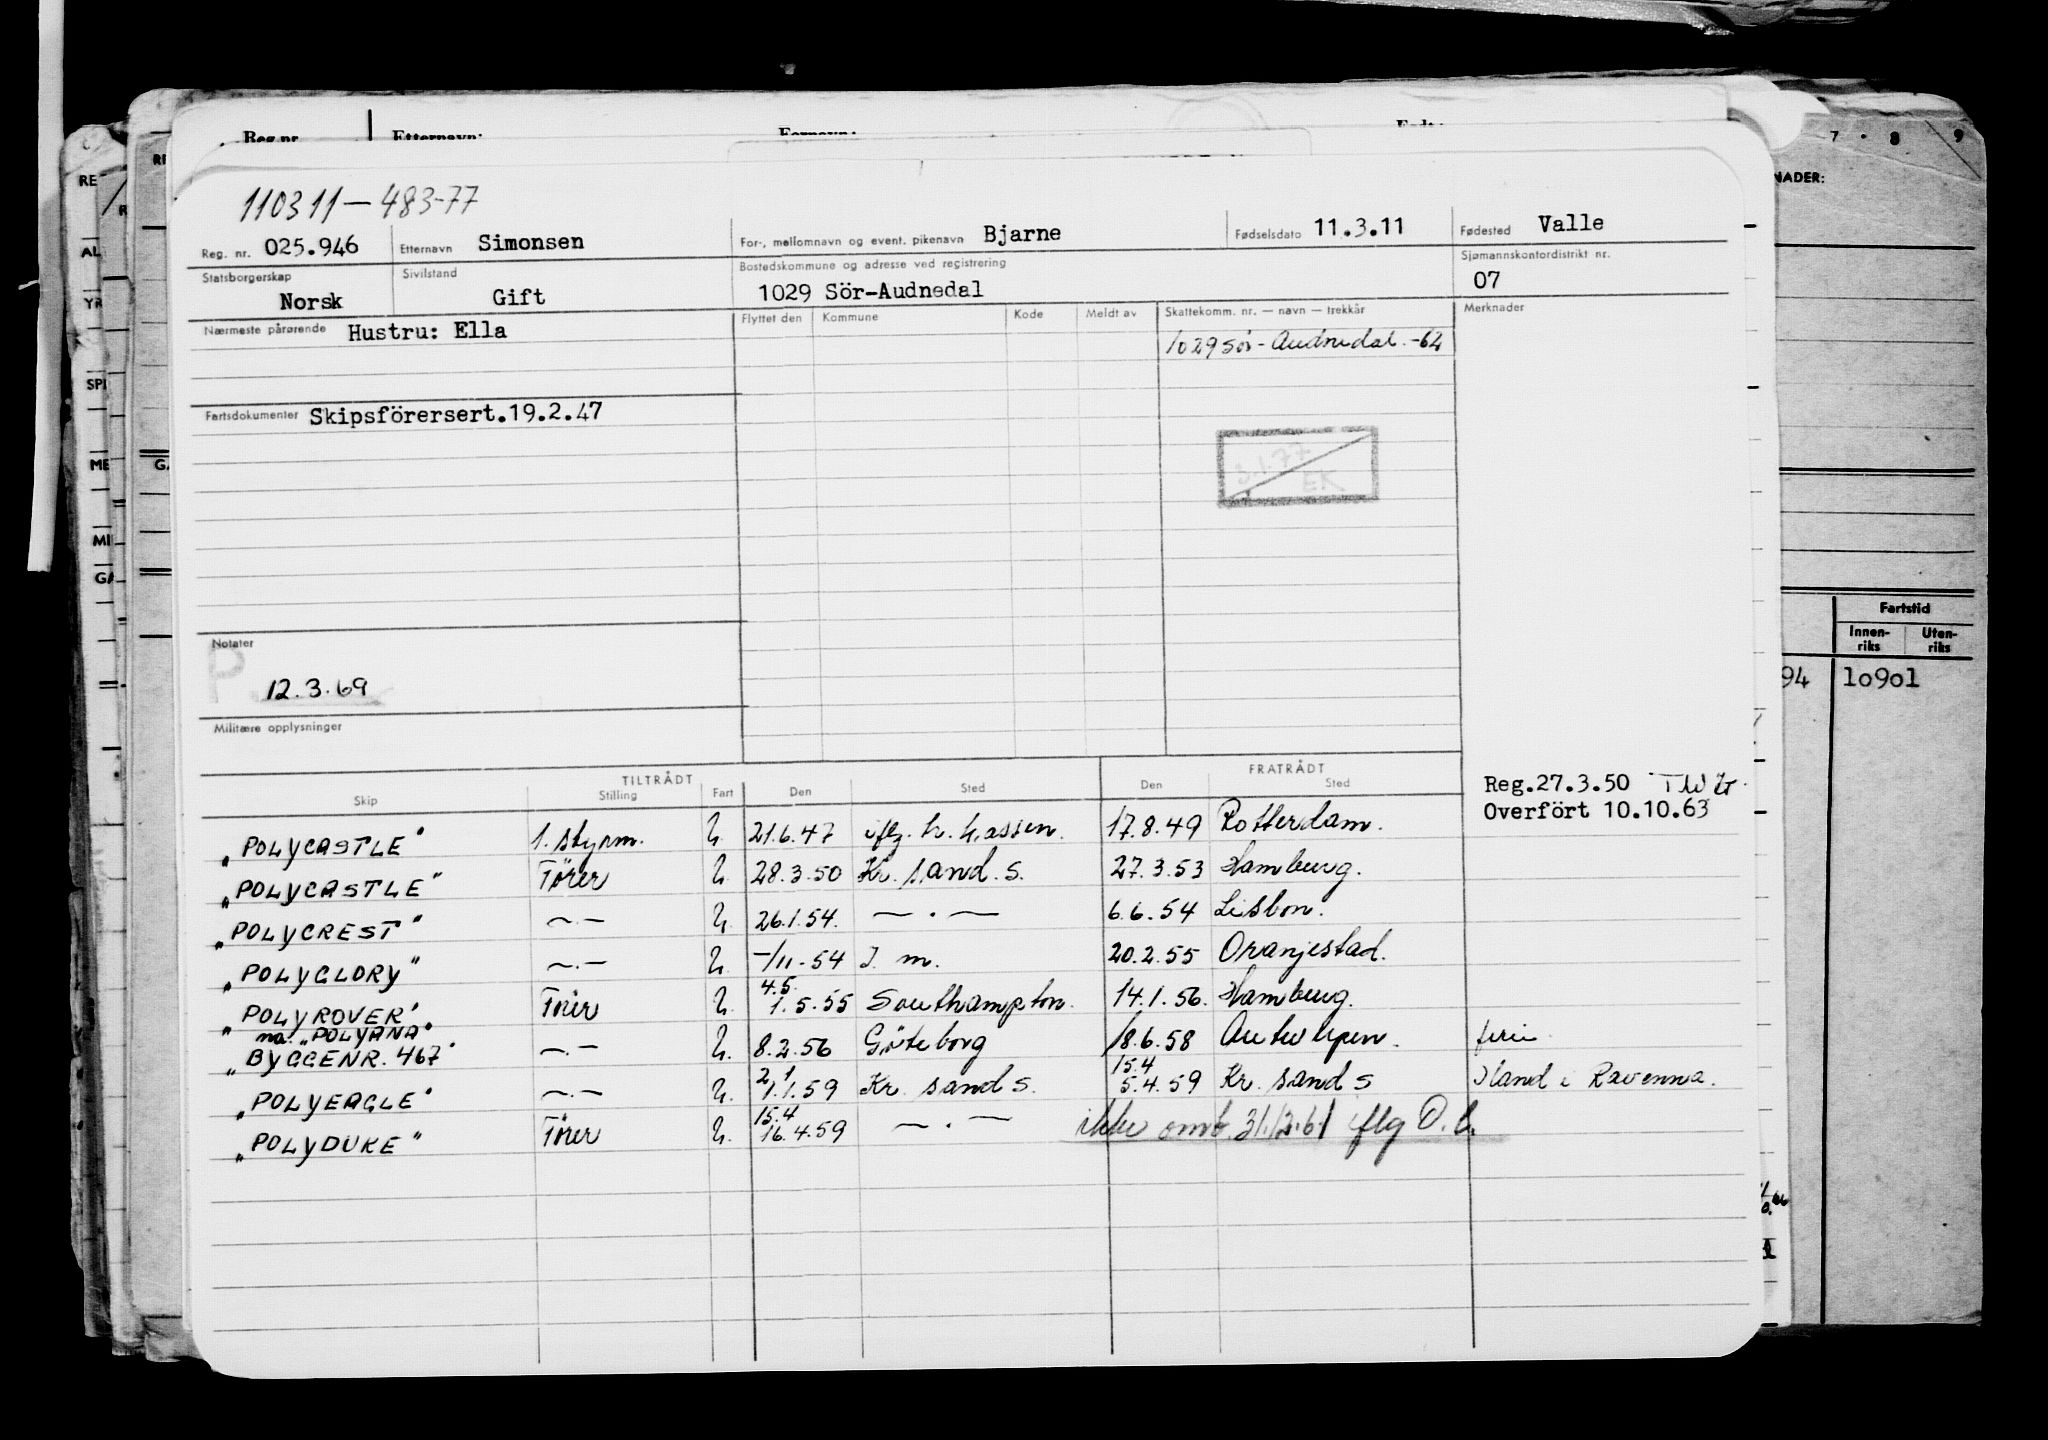 Reg.nr Etternavn: Fornavn: Født:
7 . 8 9
NADER:
110311-483-77
Reg. nr. 025.946 Etternavn Simonsen For-, mellomnavn og event. pikenavn Bjarne Fødselsdato 11.3.11 Fødested Valle
Statsborgerskap Norsk Sivilstand Gift Bostedskommune og adresse ved registrering 1029 Sör-Audnedal Sjømannskontordistrikt nr. 07
Nærmeste pårørende Hustru: Ella Flyttet den Kommune Kode Meldt av Skattekomm. nr. — navn — trekkår Merknader
1029 Sör-Audnedal.-64
Fartsdokumenter Skipsförersert.19.2.47
3.1.77
EK
Notater
P
12.3.69
Militære opplysninger
Fartstid
Innen-riks Uten-riks
94 lo9ol
TILTRÅDT FRATRÅDT
Skip Stilling Fart Den Sted Den Sted
Reg.27.3.50
Overfört 10.10.63
"POLYCASTLE" 1. styrm. U. 21.6.47 iflg. h. hassen. 17.8.49 Rotterdam.
"POLYCASTLE" Förer U. 28.3.50 Kr. sand. S. 27.3.53 Hamburg.
"POLYCREST" —.— U. 26.1.54. — . — 6.6.54 Lisbon.
"POLYGLORY" —.— U. -/11-54 I. m. 20.2.55 Oranjestad.
"POLYROVER" Förer U. 4.5. 1.5.55 Southampton. 14.1.56. Hamburg.
na. "POLYANA"
"BYGGENR. 467" —.— U. 8.2.56 Göteborg 18.6.58 Antwerpen. ferie
"POLYEAGLE" —.— U. 2.1 1.1.59 Kr. sand S. 15.4 5.4.59 Kr. sand S Iland i Ravenna.
"POLYDUKE" Förer U. 15.4 16.4.59 — . — ikke omb. 31.12.61 iflg